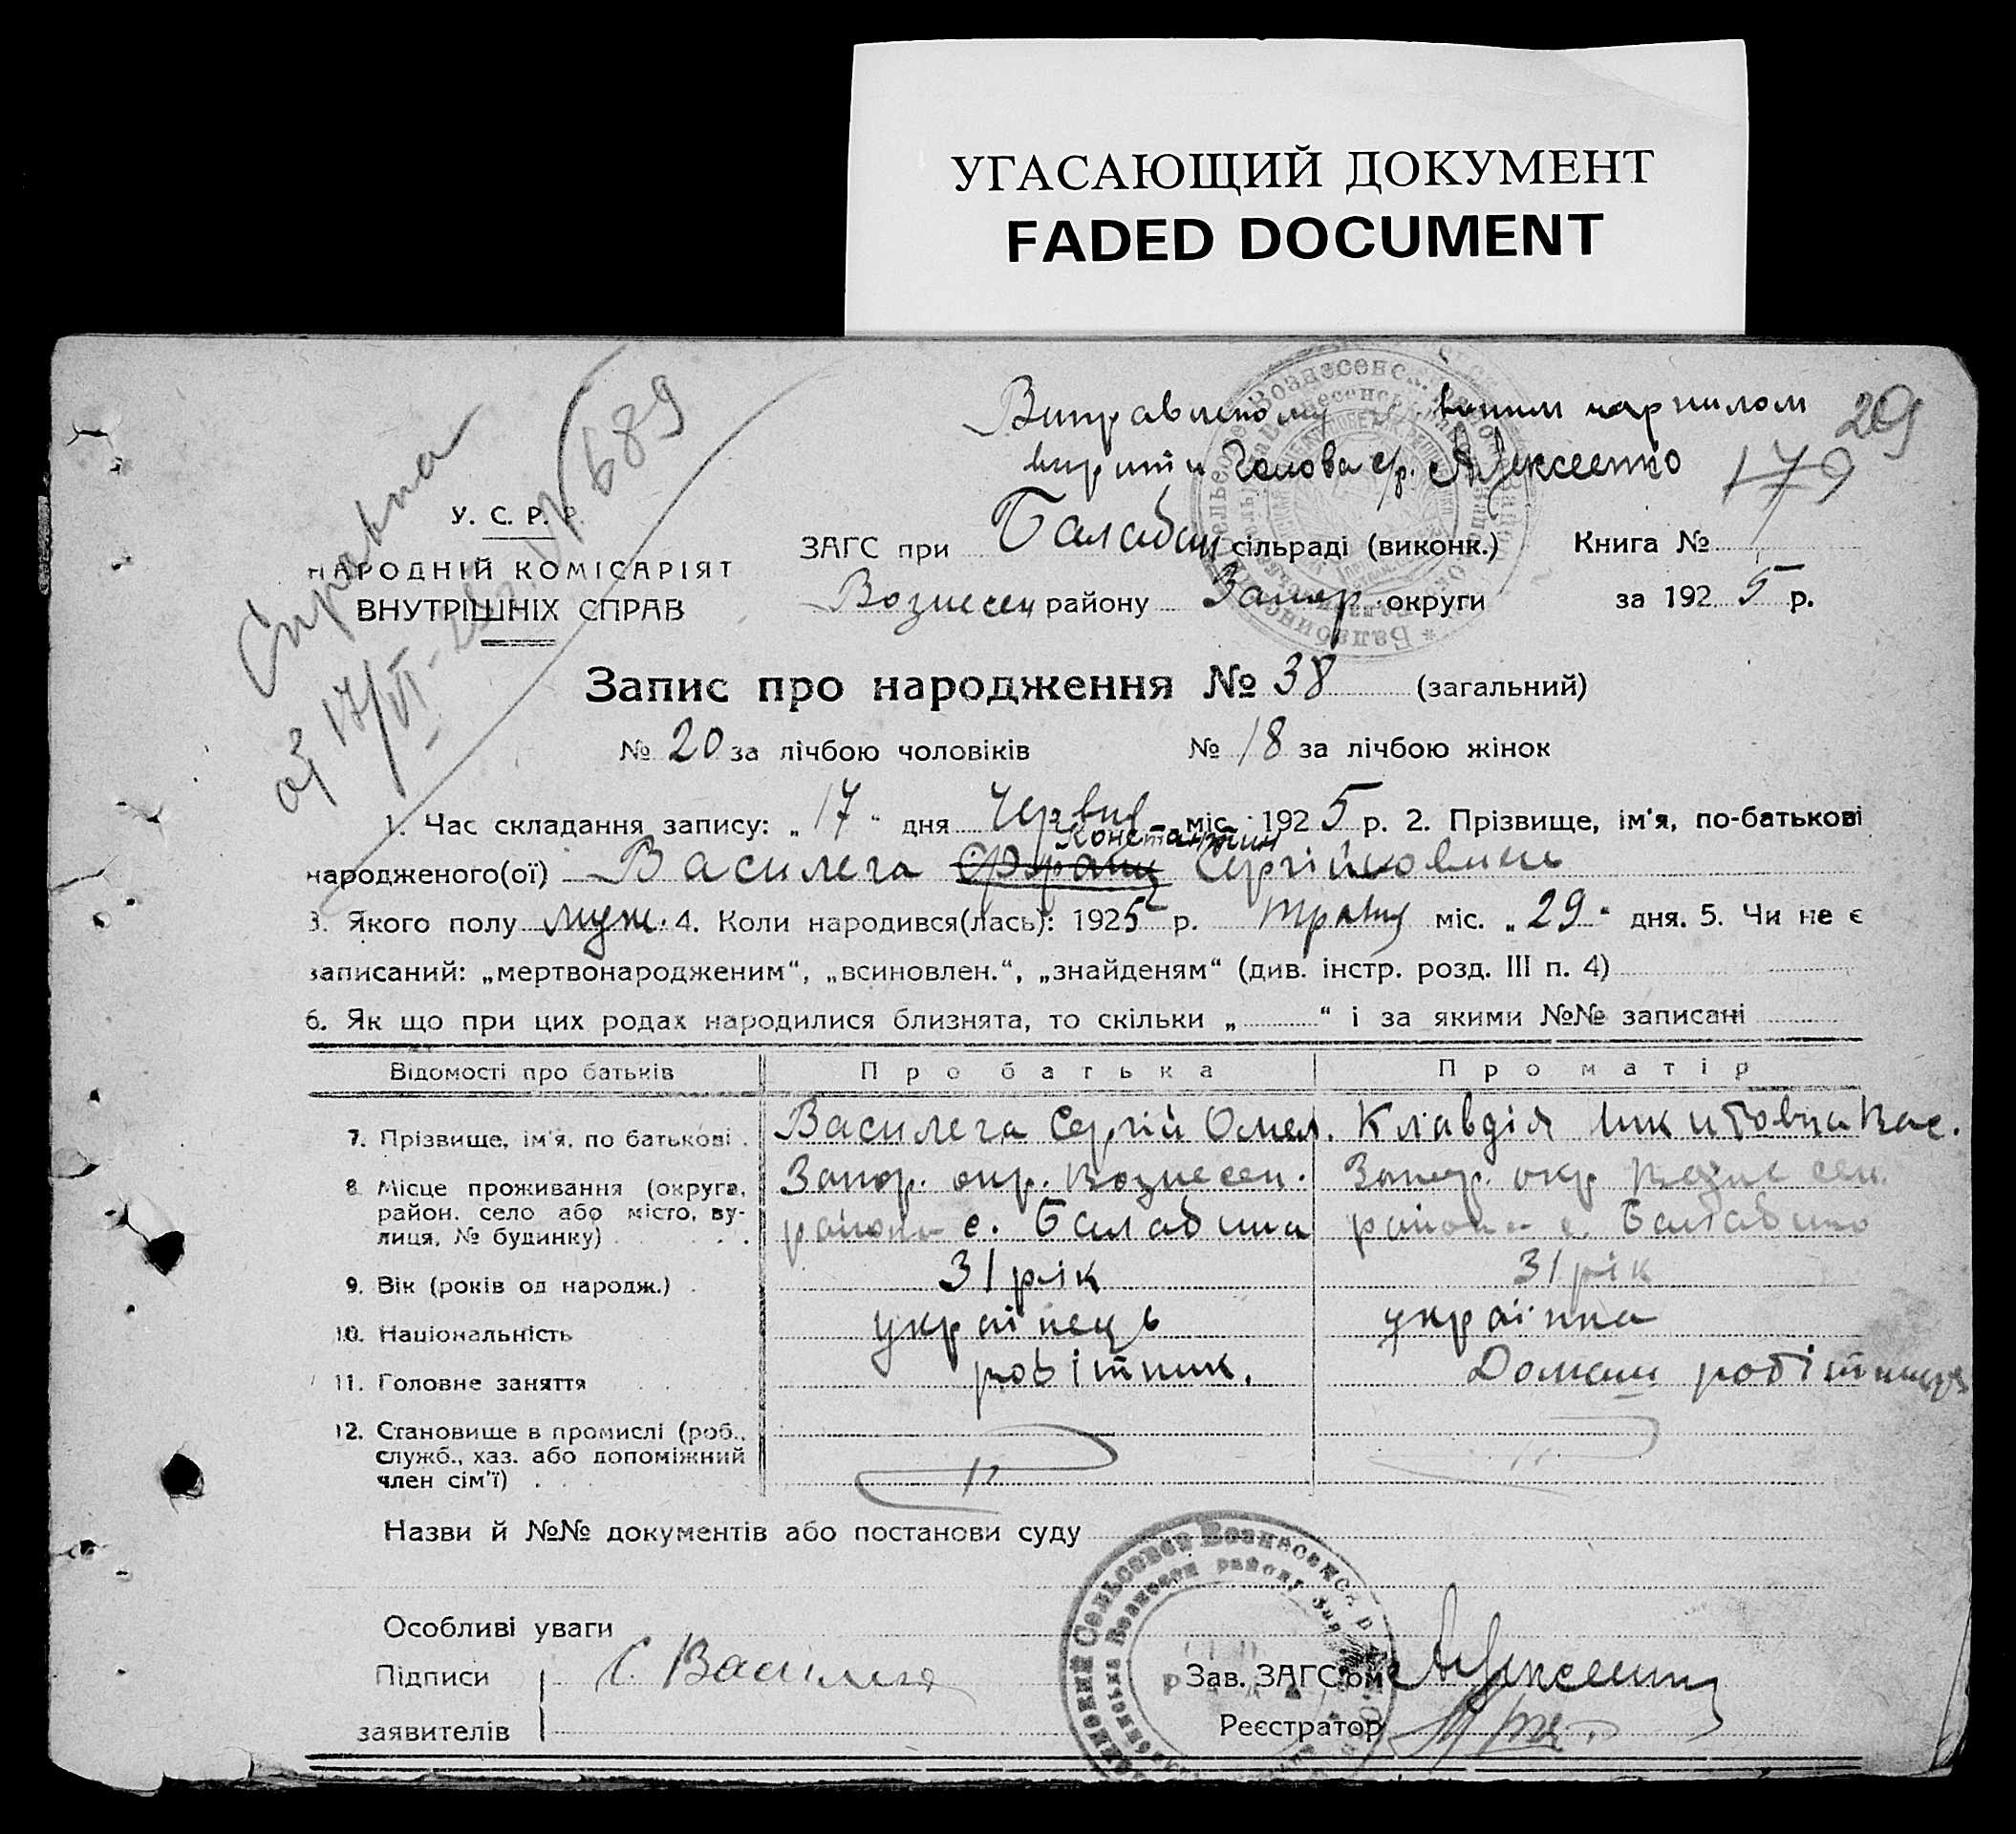 УГАСАЮЩИЙ ДОКУМЕНТ
FADED DOCUMENT
Виправленому чорнилом
вирити Голова с/р. Алексеенко
209
179
Справка
689
У. С. Р. Р.
НАРОДНІЙ КОМІСАРІЯТ
ВНУТРІШНІХ СПРАВ
ЗАГС при Балабин сільраді (виконк.) Книга №
Вознесен району Запор. округи за 1925 р.
Запис про народження № 38 (загальний)
№ 20 за лічбою чоловіків № 18 за лічбою жінок
1. Час складання запису: „17" дня Червня міс. 1925 р. 2. Прізвище, ім'я, по-батькові
Константин
народженого(ої) Василега Сергійович
3. Якого полу муж. 4. Коли народився(лась): 1925 р. травня міс. „29" дня. 5. Чи не є
записаний: „мертвонародженим“, „всиновлен.“, „знайденям“ (див. інстр. розд. III п. 4)
6. Як що при цих родах народилися близнята, то скільки „ “ і за якими №№ записані
Відомості про батьків Про батька Про матір
7. Прізвище, ім'я, по батькові Василега Сергій Омел. Клавдія Микитовна Вас.
8. Місце проживання (округа, район, село або місто, вулиця, № будинку) Запор. окр. Вознесен. району с. Балабина Запор. окр Вознесен. району с. Балабино
9. Вік (років од народж.) 31 рік 31 рік
10. Національність українець українка
11. Головне заняття робітник. Домаш робітниця
12. Становище в промислі (роб., служб., хаз. або допоміжний член сім'ї)
Назви й №№ документів або постанови суду
Особливі уваги
Підписи заявителів С. Василега
Зав. ЗАГС'ом Алексеенко
Реєстратор